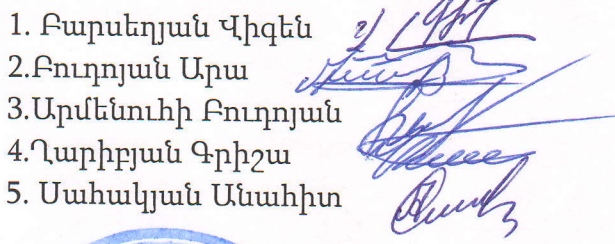 1. Բարսեղյան Վիգեն
2.Բուդոյան Արա
3.Արմենուհի Բուդոյան
4.Ղարիբյան Գրիշա
5. Սահակյան Անահիտ